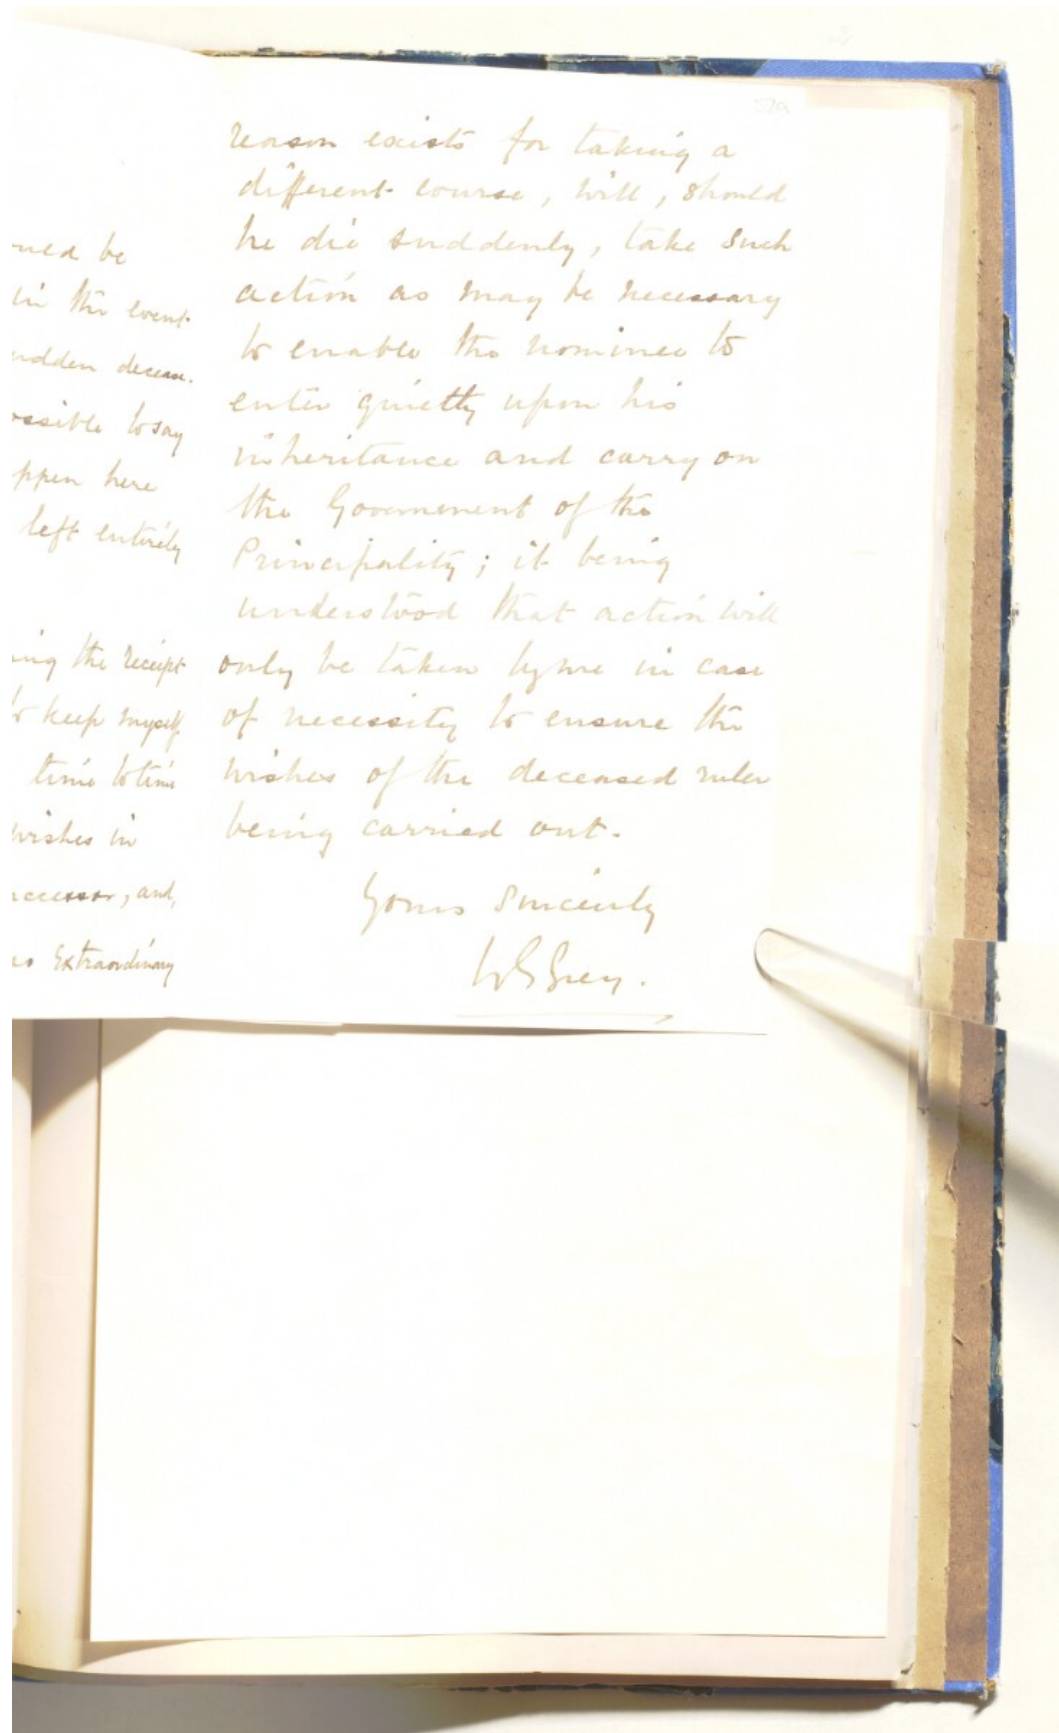 ned be
in the event
udden decease.
ossible to say
ppen here
left entirely
ing the receipt
to keep myself
time to time
wishes in
ccessor, and,
no Extraordinary
reason exists for taking a
different course, will, should
he die suddenly, take such
action as may be necessary
to enable the nominee to
enter quietly upon his
inheritance and carry on
the Government of the
Principality; it being
understood that action will
only be taken by me in case
of necessity to ensure the
wishes of the deceased ruler
being carried out.
Yours Sincerely
W G Grey.